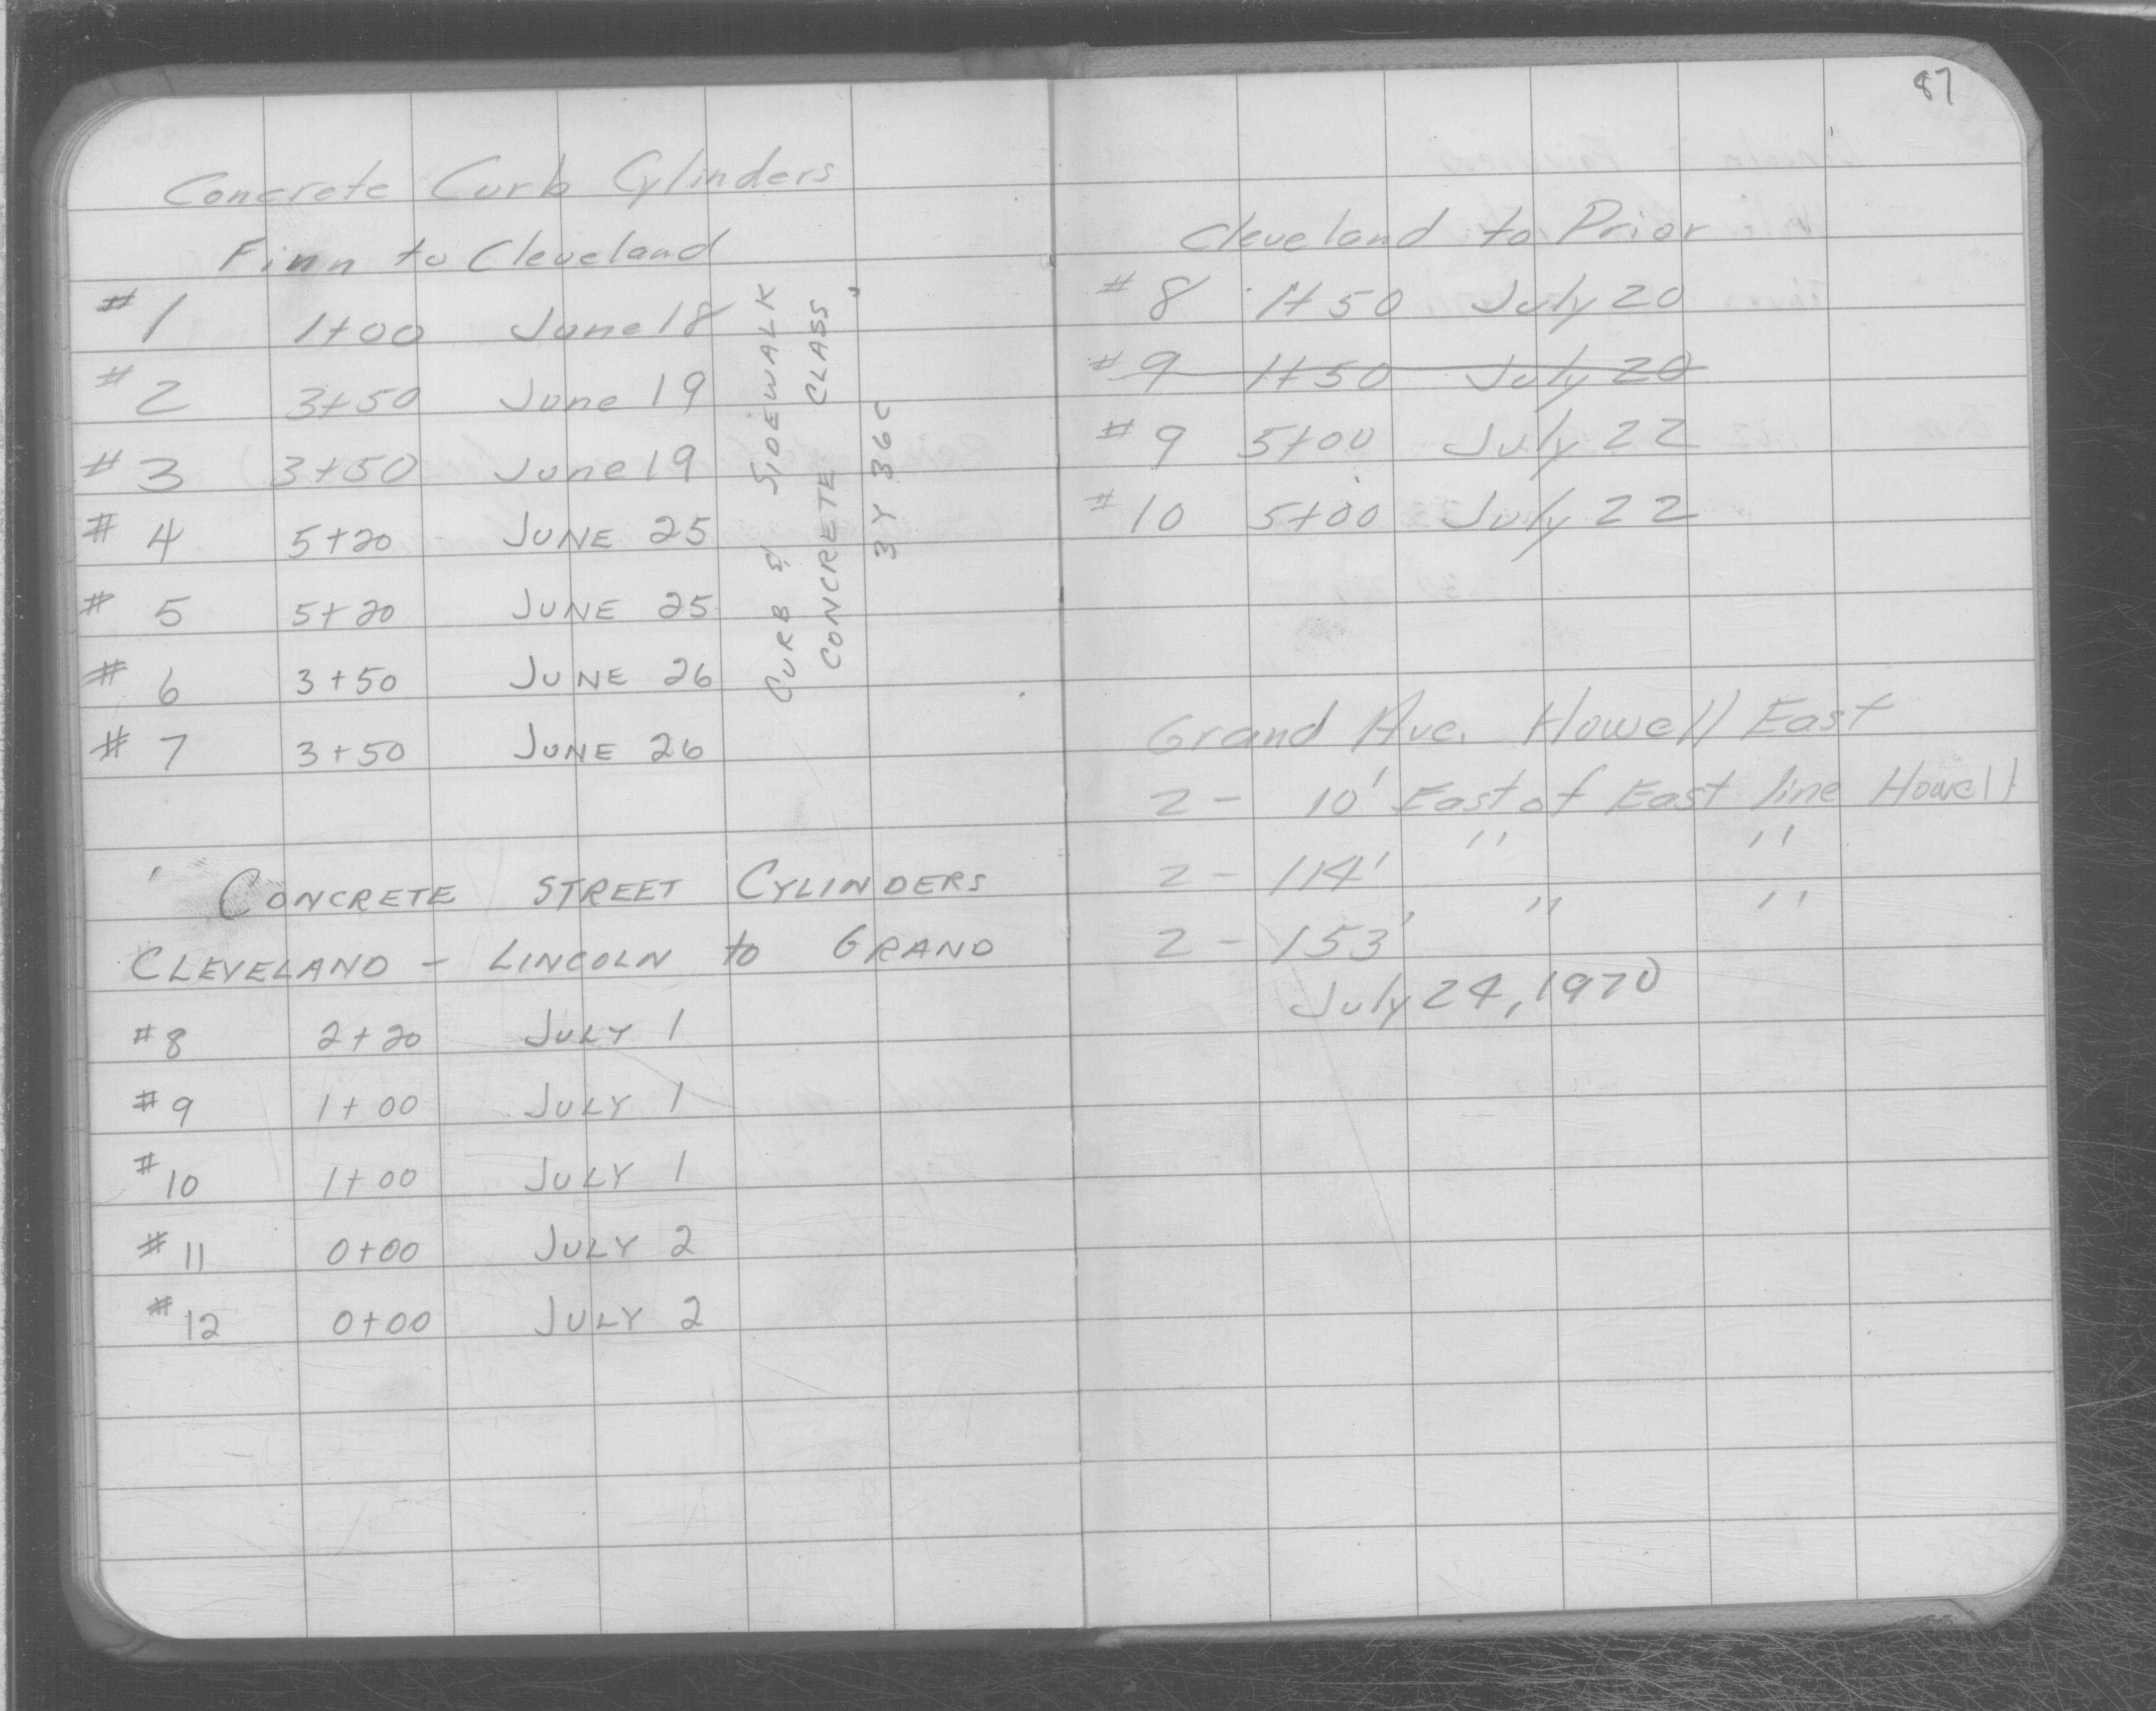 Concrete Curb Cylinders
Finn to Cleveland
#1 1+00 June 18
#2 3+50 June 19
#3 3+50 June 19
#4 5+20 JUNE 25
#5 5+20 JUNE 25
#6 3+50 JUNE 26
#7 3+50 JUNE 26
CURB & SIDEWALK
CONCRETE CLASS
3Y36C "
CONCRETE STREET CYLINDERS
CLEVELAND - LINCOLN to GRAND
#8 2+20 JULY 1
#9 1+00 JULY 1
#10 1+00 JULY 1
#11 0+00 JULY 2
#12 0+00 JULY 2
87
Cleveland to Prior
#8 1+50 July 20
#9 1+50 July 20
#9 5+00 July 22
#10 5+00 July 22
Grand Ave. Howell East
2 - 10' East of East line Howell
2 - 114' " "
2 - 153' " "
July 24, 1970